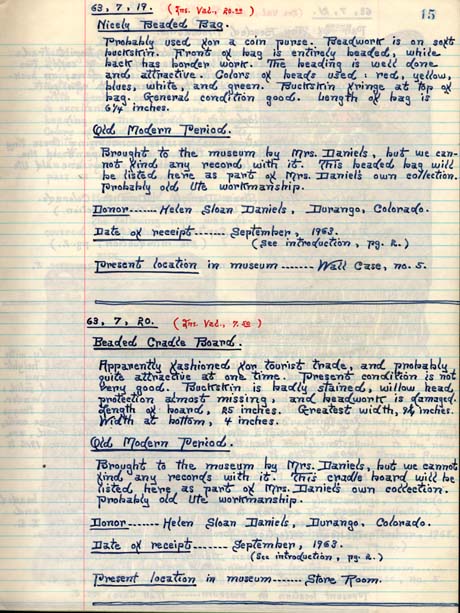 63, 7, 19. (Ins. Val., 20.00)
15
Nicely Beaded Bag.
Probably used for a coin purse. Beadwork is on soft
buckskin. Front of bag is entirely beaded, while
back has border work. The beading is well done
and attractive. Colors of beads used: red, yellow,
blues, white, and green. Buckskin fringe at top of
bag. General condition good. Length of bag is
6¼ inches.
Old Modern Period.
Brought to the museum by Mrs. Daniels, but we can-
not find any record with it. This beaded bag will
be listed here as part of Mrs. Daniels own collection.
Probably old Ute workmanship.
Donor------- Helen Sloan Daniels, Durango, Colorado.
Date of receipt------- September, 1963.
(See introduction, pg. 2.)
Present location in museum ------- Wall Case, no. 5.
63, 7, 20. (Ins. Val., 7.50)
Beaded Cradle Board.
Apparently fashioned for tourist trade, and probably
quite attractive at one time. Present condition is not
very good. Buckskin is badly stained, willow head
protection almost missing, and beadwork is damaged.
Length of board, 25 inches. Greatest width, inches.
Width at bottom, 4 inches.
Old Modern Period.
Brought to the museum by Mrs. Daniels, but we cannot
find any records with it. This cradle board will be
listed here as part of Mrs. Daniels own collection.
Probably old Ute workmanship.
Donor------- Helen Sloan Daniels, Durango, Colorado.
Date of receipt------- September, 1963.
(See introduction, pg. 2.)
Present location in museum------- Store Room.